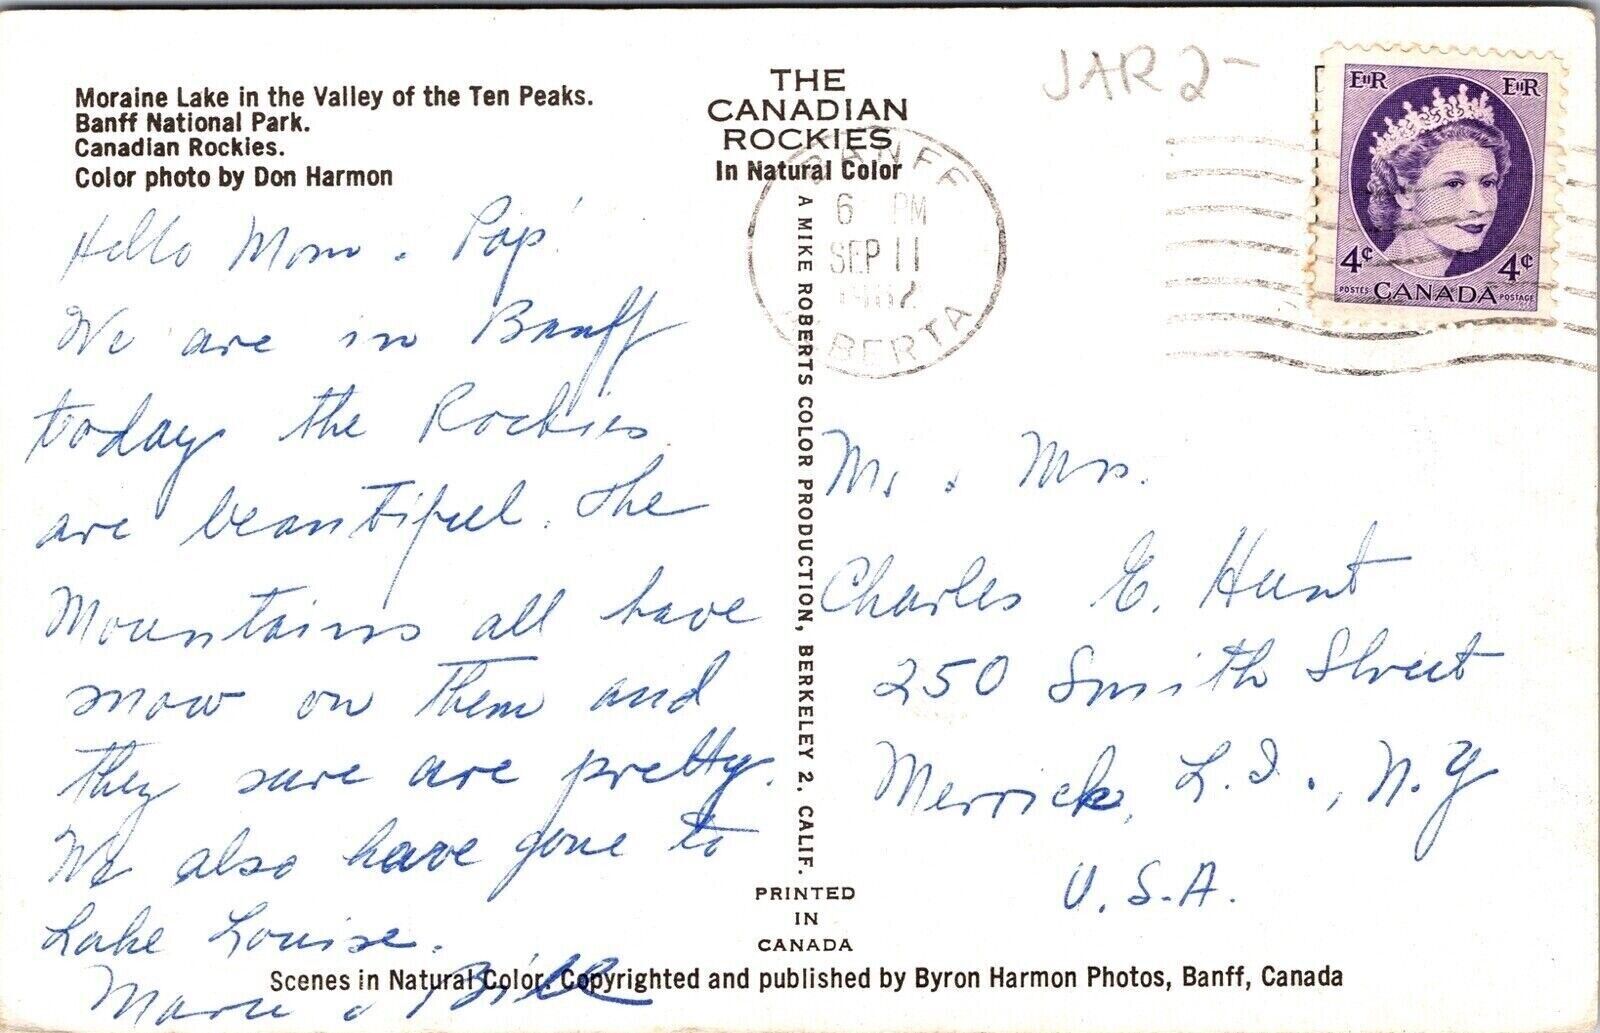 Moraine Lake in the Valley of the Ten Peaks.
Banff National Park.
Canadian Rockies.
Color photo by Don Harmon
THE
CANADIAN
ROCKIES
In Natural Color
JAR 2-
E II R
E II R
4¢
4¢
POSTES CANADA POSTAGE
BANFF
6 PM
SEP 11
ALBERTA
Hello Mom & Pop!
We are in Banff
today the Rockies
are beautiful. The
Mountains all have
snow on them and
they sure are pretty.
We also have gone to
Lake Louise.
& Bill
A MIKE ROBERTS COLOR PRODUCTION, BERKELEY 2, CALIF.
Mr. & Mrs.
Charles E. Hunt
250 Smith Street
Merrick, L.I., N.Y
U.S.A.
PRINTED
IN
CANADA
Scenes in Natural Color. Copyrighted and published by Byron Harmon Photos, Banff, Canada